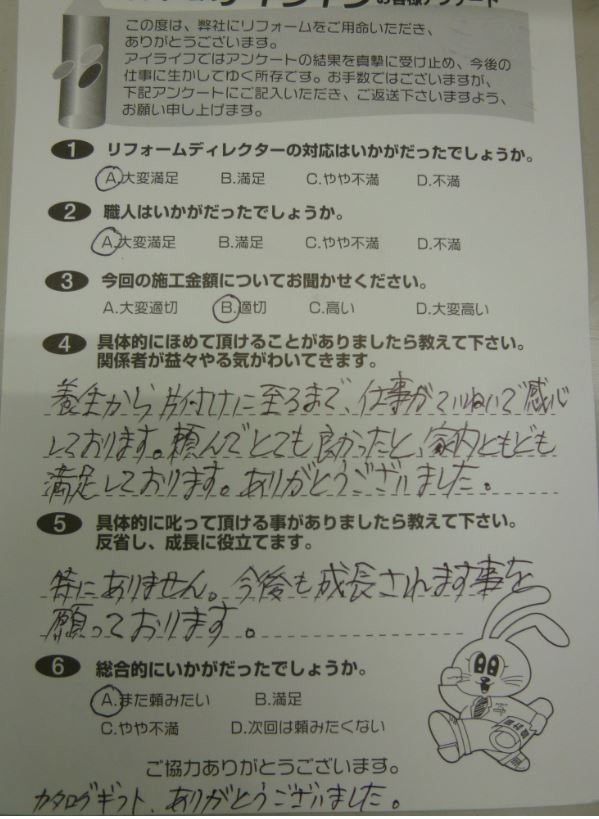 お客様アンケート
この度は、弊社にリフォームをご用命いただき、
ありがとうございます。
アイライフではアンケートの結果を真摯に受け止め、今後の
仕事に生かしてゆく所存です。お手数ではございますが、
下記アンケートにご記入いただき、ご返送下さいますよう、
お願い申し上げます。
1 リフォームディレクターの対応はいかがだったでしょうか。
A.大変満足 B.満足 C.やや不満 D.不満
2 職人はいかがだったでしょうか。
A.大変満足 B.満足 C.やや不満 D.不満
3 今回の施工金額についてお聞かせください。
A.大変適切 B.適切 C.高い D.大変高い
4 具体的にほめて頂けることがありましたら教えて下さい。
関係者が益々やる気がわいてきます。
養生から片付けに至るまで、仕事がていねいで感心
しております。頼んでとても良かったと、家内ともども
満足しております。ありがとうございました。
5 具体的に叱って頂ける事がありましたら教えて下さい。
反省し、成長に役立てます。
特にありません。今後も成長されます事を
願っております。
6 総合的にいかがだったでしょうか。
A.また頼みたい B.満足
C.やや不満 D.次回は頼みたくない
ご協力ありがとうございます。
カタログギフト、ありがとうございました。